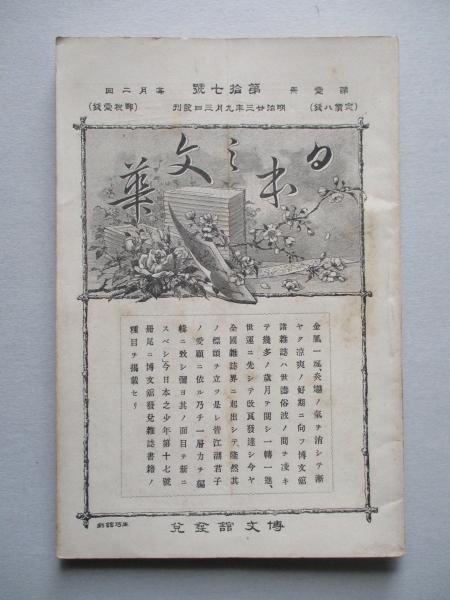 第壹卷
第拾七號
每月二回
(定價八錢)
明治廿三年九月三日發刊
(郵稅壹錢)
日本之文華
金風一颯、炎塲ノ氣ヲ治シテ漸
ヤク涼爽ノ好期ニ向フ博文舘
諸雜誌ハ世濤俗波ノ間ヲ凌キ
テ幾多ノ歲月ヲ閱シ一轉一進、
世運ニ先シテ改良發達シ今ヤ
全國雜誌界ニ起出シテ隆然其
ノ標頭ヲ立ツ是レ皆江湖君子
ノ愛顧ニ依ル乃チ一層力ヲ編
輯ニ致シ彌ヨ其ノ面目ヲ新ニ
スベシ」今日本之少年第十七號
册尾ニ博文舘發兌雜誌書籍ノ
種目ヲ揭載セリ
博文舘發兌